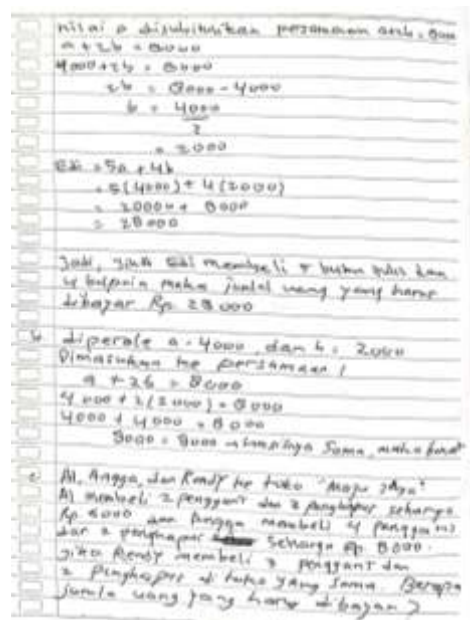 nilai a disubstitusikan persamaan a+2b = 8000
a + 2b = 8000
4000 + 2b = 8000
2b = 8000 - 4000
b = 4000
2
= 2000
Edi = 5a + 4b
= 5(4000) + 4(2000)
= 20000 + 8000
= 28000
Jadi, jika Edi membeli 5 buku tulis dan
4 bulpoin maka jumlal uang yang harus
dibayar Rp. 28 000
b diperole a = 4000 dan b = 2000
Dimasukan ke persamaan 1
a + 2b = 8000
4000 + 2(2000) = 8000
4000 + 4000 = 8000
8000 = 8000 Sama, maka
c Al, Angga, dan Rendy ke toko "Maju Jaya"
Al membeli 2 penggaris dan 3 penghapus seharga
Rp. 6000 dan Angga membeli 4 penggaris
dan 2 penghapus seharga Rp. 8000.
Jika Rendy membeli 3 penggaris dan
2 penghapus di toko yang sama. Berapa
jumla uang yang harus dibayar?